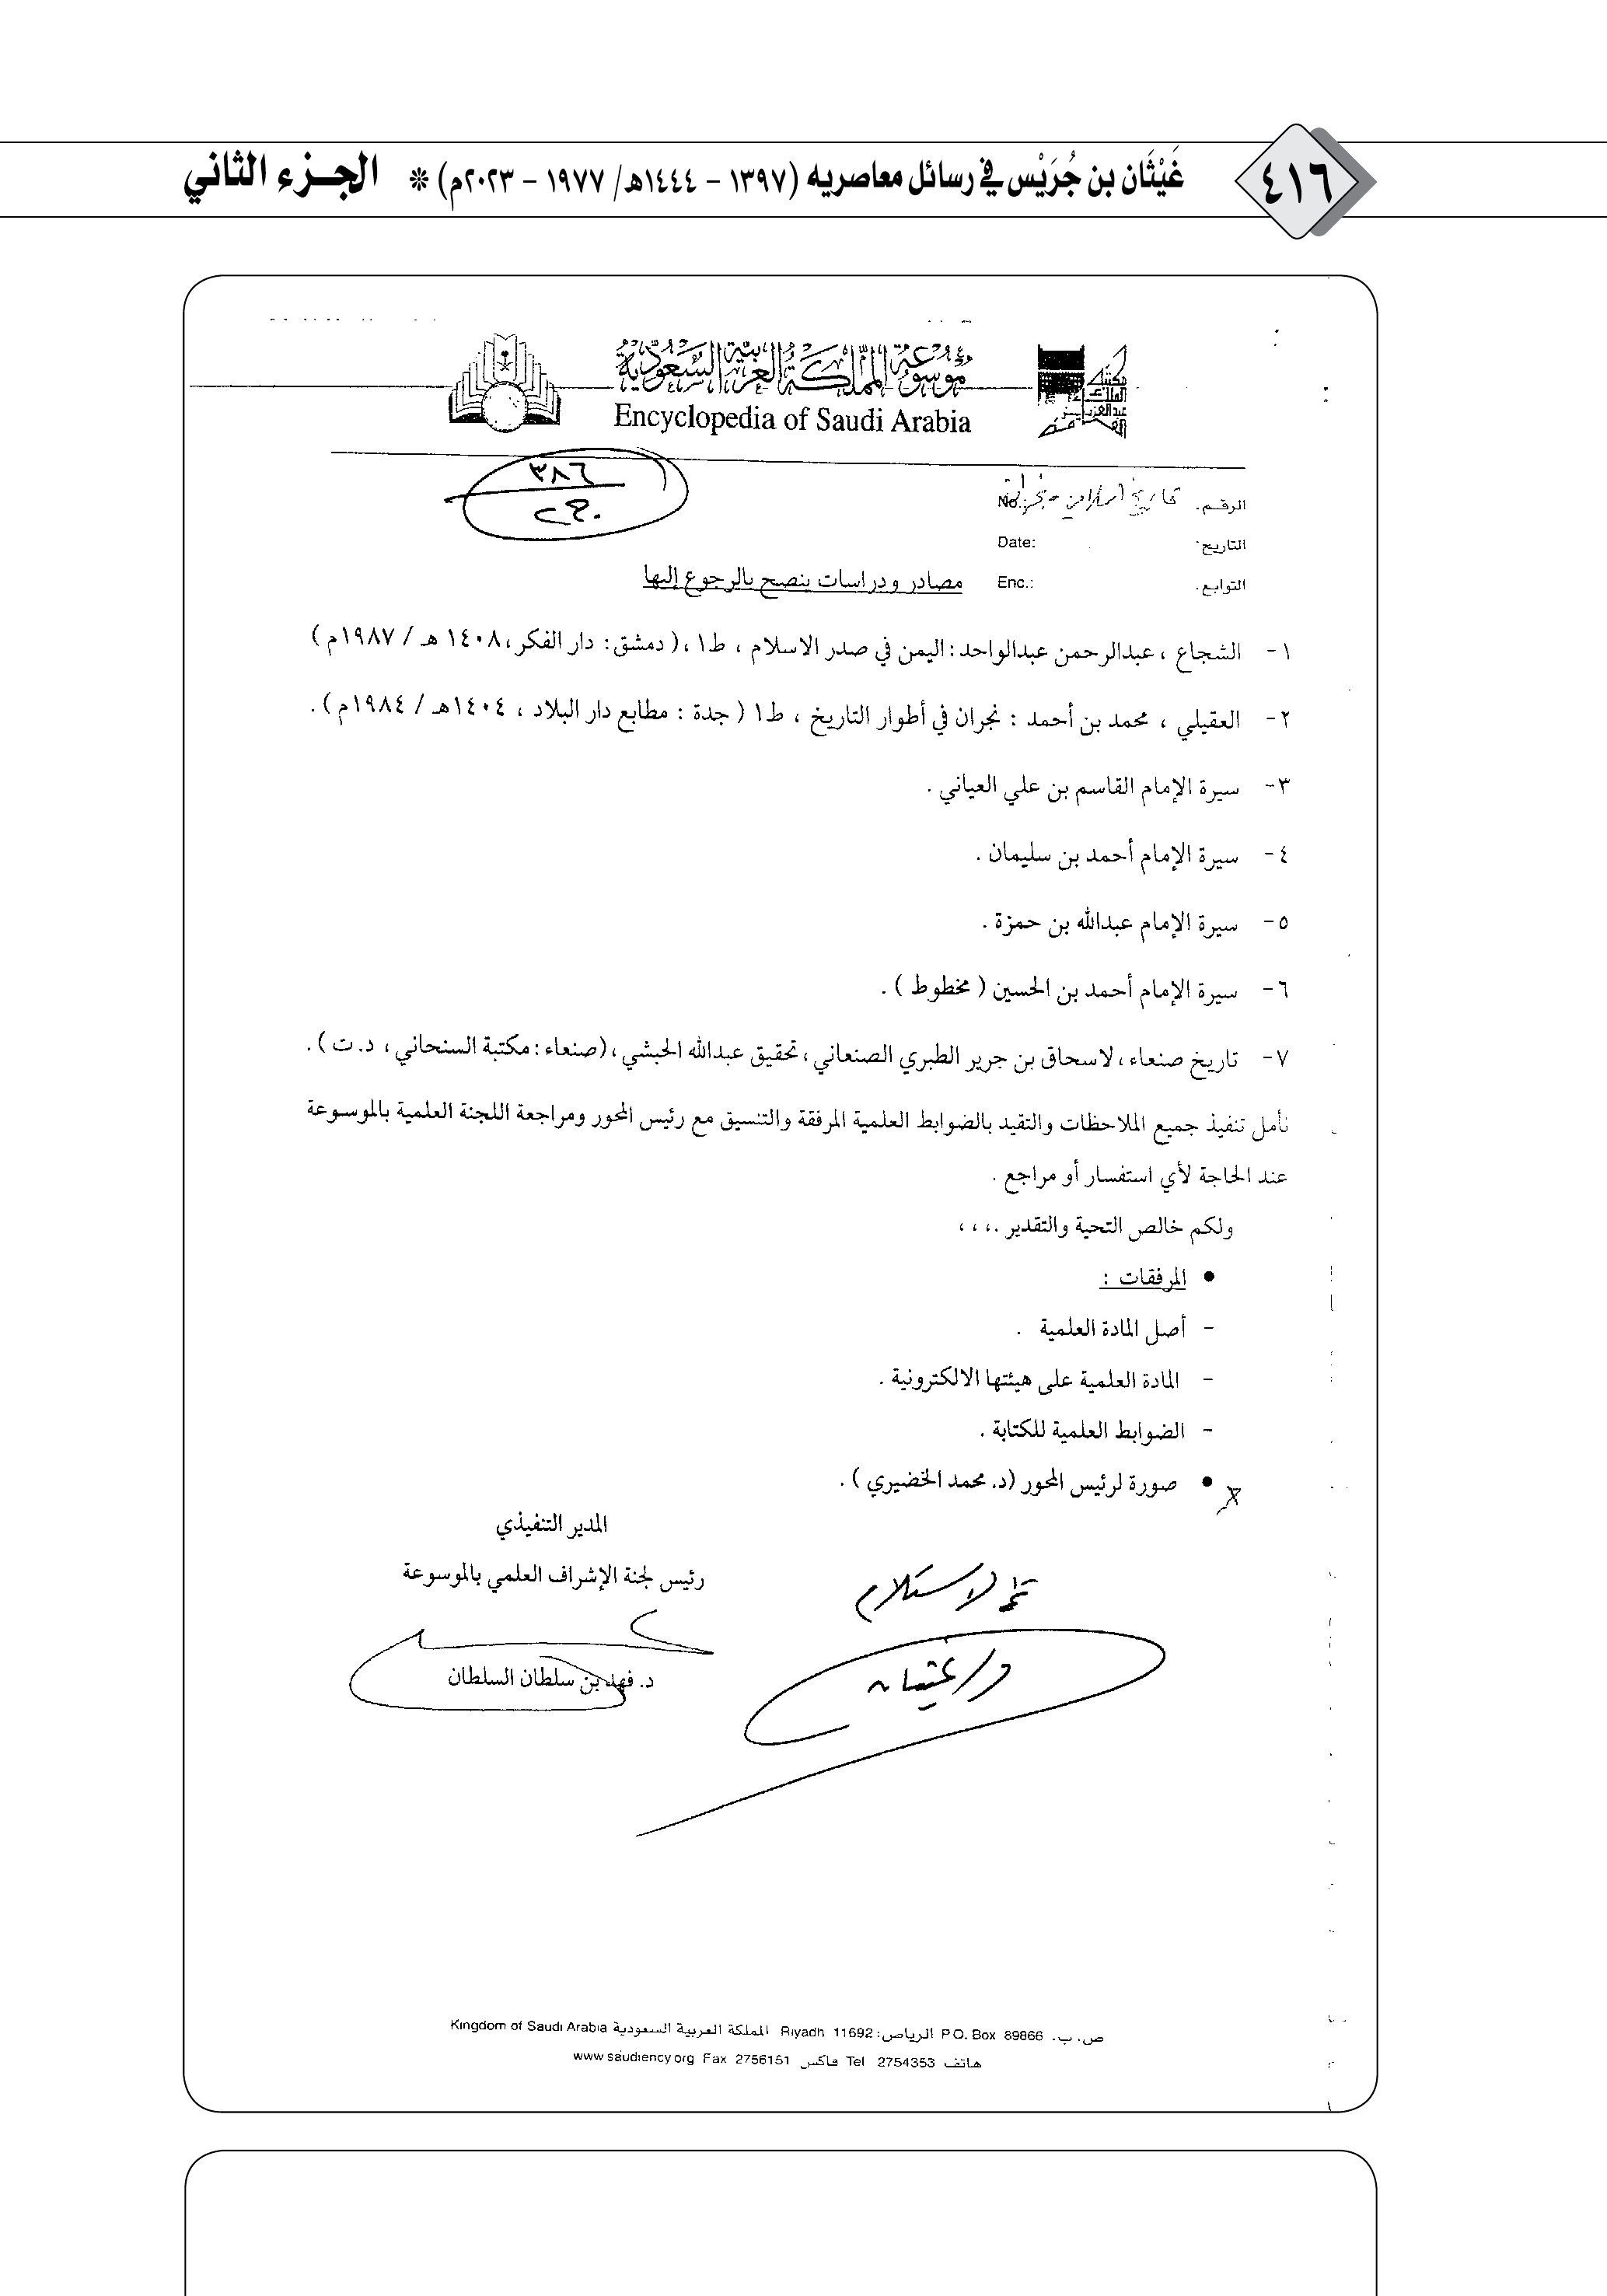 ٤١٦
غَيْثَان بن جُرَيْس في رسائل معاصريه (١٣٩٧ - ١٤٤٤هـ/ ١٩٧٧ - ٢٠٢٣م) * الجــزء الثاني
مكتبة الملك عبدالعزيز العامة
موسوعة المملكة العربية السعودية
Encyclopedia of Saudi Arabia
٣٨٦
الرقم. No. تاريخ إسلامي - نجران
التاريخ: Date:
التوابع. Enc.:
مصادر ودراسات ينصح بالرجوع إليها
١- الشجاع ، عبدالرحمن عبدالواحد : اليمن في صدر الاسلام ، ط١ ، ( دمشق : دار الفكر ، ١٤٠٨ هـ / ١٩٨٧م )
٢- العقيلي ، محمد بن أحمد : نجران في أطوار التاريخ ، ط١ ( جدة : مطابع دار البلاد ، ١٤٠٤هـ / ١٩٨٤م ) .
٣- سيرة الإمام القاسم بن علي العياني .
٤- سيرة الإمام أحمد بن سليمان .
٥- سيرة الإمام عبدالله بن حمزة .
٦- سيرة الإمام أحمد بن الحسين ( مخطوط ) .
٧- تاريخ صنعاء ، لاسحاق بن جرير الطبري الصنعاني ، تحقيق عبدالله الحبشي ، (صنعاء : مكتبة السنحاني ، د. ت ) .
نأمل تنفيذ جميع الملاحظات والتقيد بالضوابط العلمية المرفقة والتنسيق مع رئيس المحور ومراجعة اللجنة العلمية بالموسوعة
عند الحاجة لأي استفسار أو مراجع .
ولكم خالص التحية والتقدير .، ، ،
● المرفقات :
- أصل المادة العلمية .
- المادة العلمية على هيئتها الالكترونية .
- الضوابط العلمية للكتابة .
● صورة لرئيس المحور (د. محمد الخضيري ) .
المدير التنفيذي
رئيس لجنة الإشراف العلمي بالموسوعة
تم الاستلام
د. فهد بن سلطان السلطان
د/ غيثان
ص. ب. P.O. Box 89866 الرياض: Riyadh 11692 المملكة العربية السعودية Kingdom of Saudi Arabia
هاتف Tel 2754353 فاكس Fax 2756151 www saudiency org